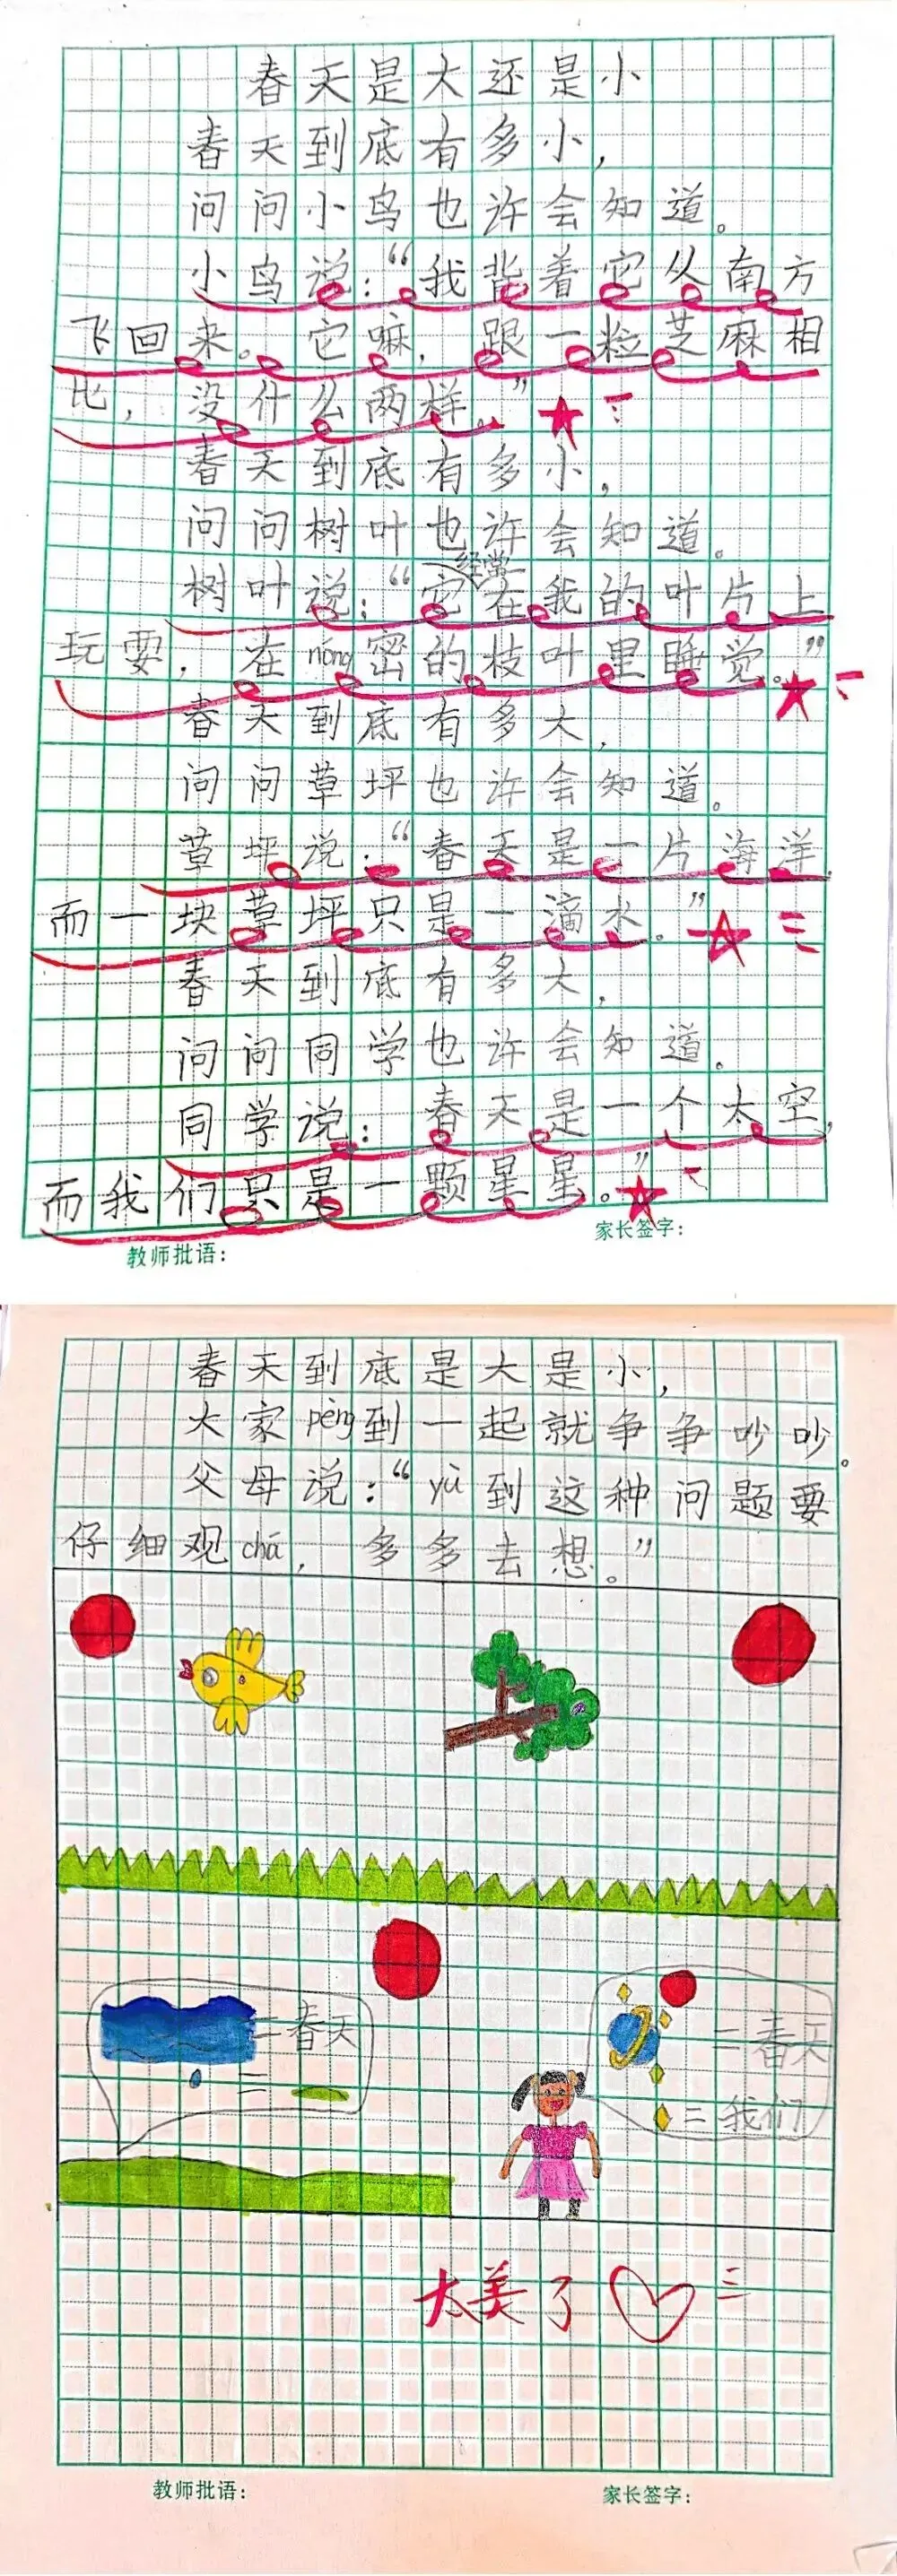 春天是大还是小
春天到底有多小，
问问小鸟也许会知道。
小鸟说：“我背着它从南方
飞回来。它嘛，跟一粒芝麻相
比，没什么两样。”
春天到底有多小，
问问树叶也许会知道。
经常
树叶说：“它在我的叶片上
玩耍，在nóng密的枝叶里睡觉。”
春天到底有多大，
问问草坪也许会知道。
草坪说：“春天是一片海洋，
而一块草坪只是一滴水。”
春天到底有多大，
问问同学也许会知道。
同学说：春天是一个太空，
而我们只是一颗星星。”
教师批语：
家长签字：
春天到底是大是小，
大家pèng到一起就争争吵吵。
父母说：“yù到这种问题要
仔细观chá，多多去想。”
=春天
=
=春天
=我们
太美了
教师批语：
家长签字：